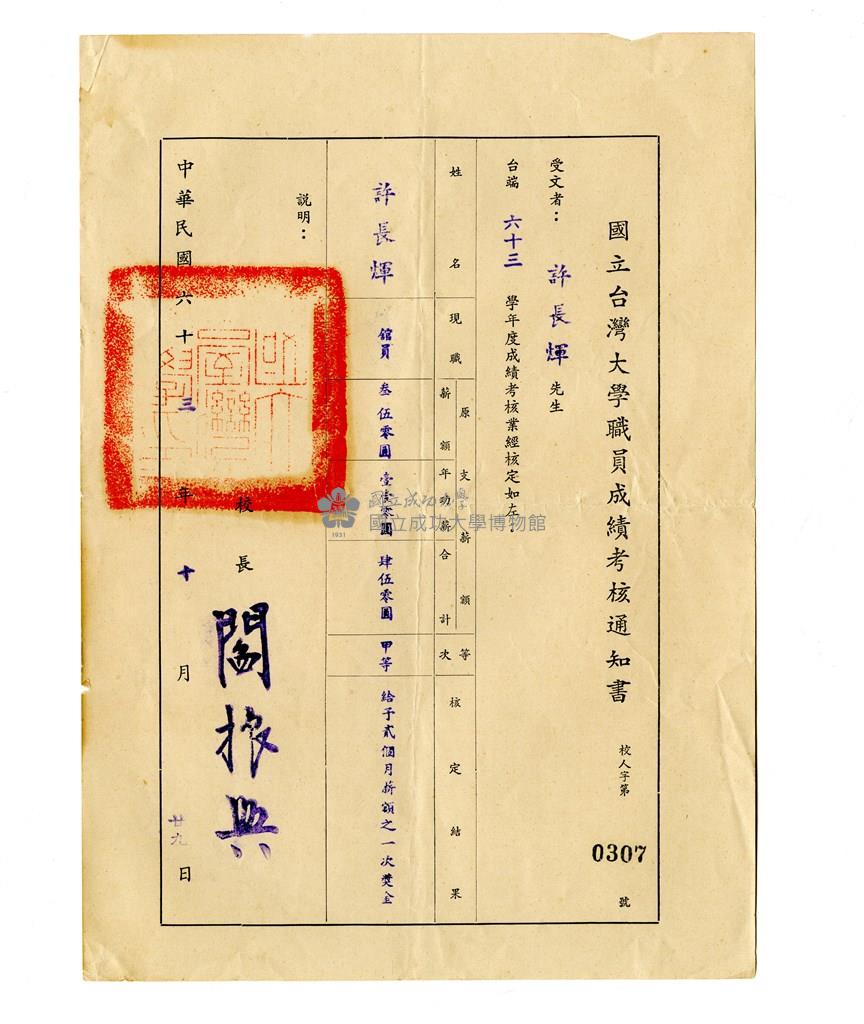 國立台灣大學職員成績考核通知書
校人字第
0307
號
受文者：許長煇 先生
台端 六十三 學年度成績考核業經核定如左：
姓名
現職
原支薪額
薪額
年功薪
合計
等次
核定結果
許長煇
館員
叁伍零圓
壹零圓
肆伍零圓
甲等
給予貳個月薪額之一次獎金
說明：
校長 閻振興
中華民國六十三年十月廿九日
國立成功大學
國立成功大學博物館
1931